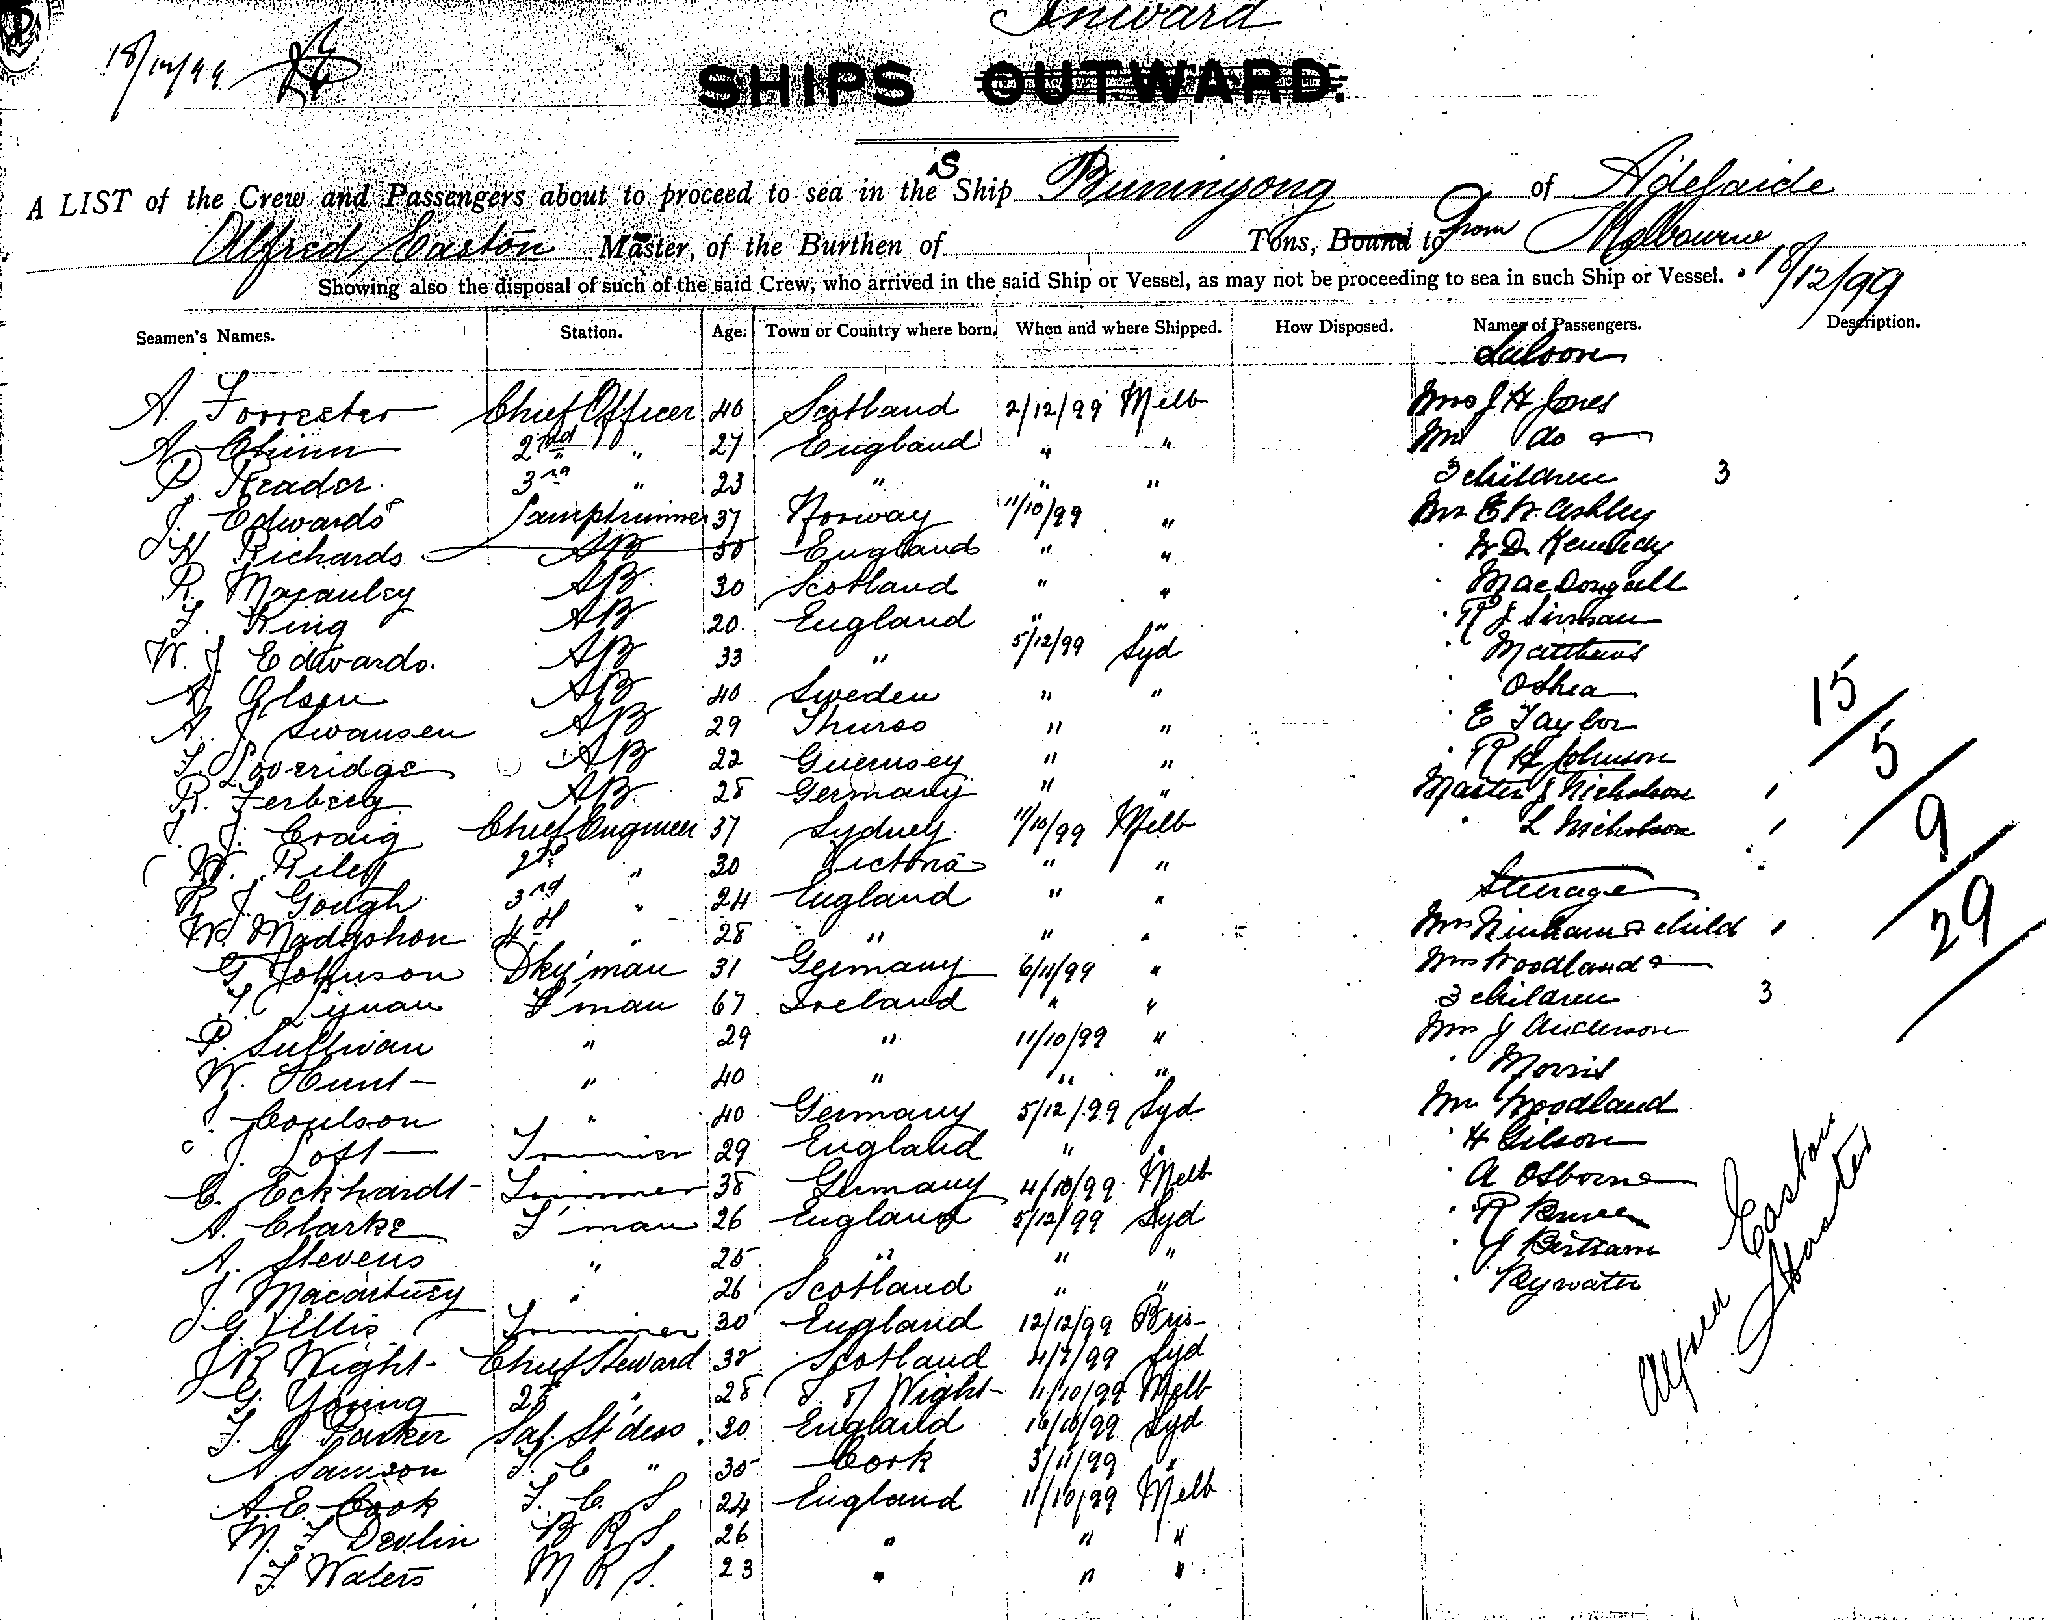 Inward
18/12/99
SHIPS OUTWARD.
A LIST of the Crew and Passengers about to proceed to sea in the S Ship Buninyong of Adelaide
Alfred Easton Master, of the Burthen of Tons, Bound to From Melbourne
Showing also the disposal of such of the said Crew, who arrived in the said Ship or Vessel, as may not be proceeding to sea in such Ship or Vessel. 18/12/99
Seamen's Names. Station. Age. Town or Country where born. When and where Shipped. How Disposed. Names of Passengers. Description.
Saloon
A. Forrester Chief Officer 40 Scotland 2/12/99 Melb Mrs J H Jones
A. Chinn 2nd " 27 England " " Mr do &
P. Reader. 3rd " 23 " " " 3 children 3
J. Edwards Lamptrimmer 37 Norway 11/10/99 " Mr E W Ashley
H Richards AB 50 England " " " W D Kennedy
R. Macauley AB. 30 Scotland " " " MacDougall
F. King AB 20 England " " " R J
W. J. Edwards. AB 33 " 5/12/99 Syd " Matthews
A Olsen AB 40 Sweden " " " OShea
A. J. Swansen AB 29 Thurso " " " E Taylor
F Loveridge AB 22 Guernsey " " " R H Johnson
R. Ferberg AB. 28 Germany " " Master J Nicholson 1
J. J. Craig Chief Engineer 37 Sydney. 11/10/99 Melb " L Nicholson 1
W. Riley 2nd " 30 Victoria " "
R J. Gough 3rd " 24 England " " Steerage
W. Madgshon 4th " 28 " " " Mrs Ninham & child 1
G. Johnson Dky'man 31 Germany 6/11/99 " Mrs Woodland &
T. Lynan F'man 67 Ireland " " 3 children 3
P. Sullivan " 29 " 11/10/99 " Mrs J Anderson
W. Hunt " 40 " " " " Morris
J. Coulson " 40 Germany 5/12/99 Syd Mr Woodland
J. Loft Trimmer 29 England " " " H Gilson
C. Eckhardt Trimmer 38 Germany 4/10/99 Melb " A Osborne
A. Clarke F'man 26 England 5/12/99 Syd " R
A. Stevens " 25 " " " " J Bertram
J. Macartney " 26 Scotland " " " Bywater
G. Ellis Trimmer 30 England 12/12/99 Bris
J R Wight Chief Steward 32 Scotland 4/7/99 Syd
G. Young 2nd " 28 I of Wight 11/10/99 Melb
F. J Parker Sal. St'dess 30 England 16/10/99 Syd
A Samson F. C " 35 Cork 3/11/99 "
A. E. Cook F. C. S 24 England 11/10/99 Melb
M. F Devlin B R S 26 " " "
F Waters M R S. 23 " " "
15
5
9
29
Alfred Easton